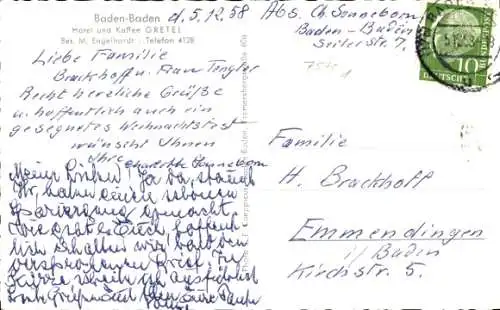 Baden-Baden d. 5.12.58
Hotel und Kaffee GRETEL
Bes. M. Engelhardt · Telefon 4128
Abs. Ch. Sonneborn
Baden-Baden
Seilerstr. 7.
10
DEUTSCHE BUNDESPOST
Liebe Familie
Brackhoff u. Frau Tengler
Recht herzliche Grüße
u. hoffentlich auch ein
gesegnetes Weihnachtsfest
wünscht Ihnen
Ihre
Charlotte Sonneborn
Meine Lieben! Ja da staunt
Ihr, haben einen schönen
Spaziergang gemacht
wie geht es Euch, hoffent
lich erhalten wir bald den
versprochenen Brief. In
Kürze schreibe ich ausführlich
Familie
H. Brackhoff
Emmendingen
i/Baden
Kirchstr. 5.